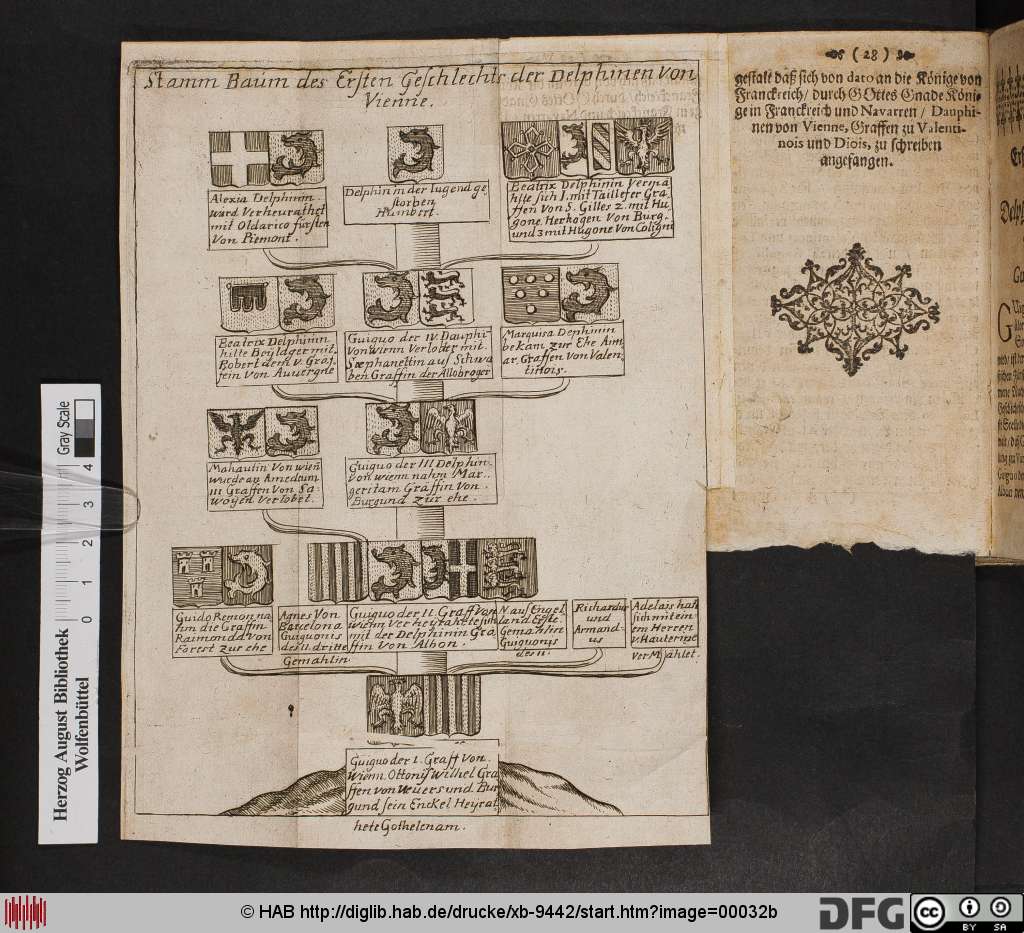 Stamm Baum des Ersten Geschlechts der Delphinen von
Vienne.
Alexia Delphinin
ward Verheurathet
mit Oldarico fürsten
Von Piemont.
Delphin in der Iugend ge
storben
Humbert.
Beatrix Delphinin Vermä
hlte sich 1. mit Taillefer Gra
ffen von S. Gilles 2. mit Hu
gone Hertzogen Von Burg
und 3 mit Hugone Von Coligni
Beatrix Delphinin
hilte Beÿlager mit
Robert dem V. Graf
fein von Auvergne
Guiguo der IV. Dauphi
Von Wienn Verlobter mit
Stephanettin aus Schwa
ben Graffin der Allobroger
Marquisa Dephinin
bekam zur Ehe Aim
ar. Graffen Von Valen
tinois.
Mahautin Von wien
wurde an Amedeum
III Graffen Von Sa
voyen Verlobet.
Guiguo der III Delphin
von wienn nahm Mar
geritam Gräffin Von
Burgund zur ehe.
Guido Remon na
hm die Graffin
Raimonda von
Forest zur ehe
Agnes Von
Barcelona
Guiguonis
des II. dritte
Gemahlin
Guiguo der II. Graff Von
Wienn Verheyrahtete sich
mit der Delphinin Gra
ffin Von Albon.
N. aus Engel
land Erste
Gemahlin
Guiguonis
des II.
Richardus
und
Armand-
us
Adelais hatt
sich mit ein
em Herren
v. Hauterive
Vermählet.
Guiguo der I. Graff Von
Wienn. Ottonis Wilhel Gra
ffen von Nevers und Bur
gund sein Enckel Heyrat
hete Gothelenam.
( 28 )
gestalt daß sich von dato an die Könige von
Franckreich / durch GOttes Gnade Köni-
ge in Franckreich und Navarren / Dauphi-
nen von Vienne, Graffen zu Valenti-
nois und Diois, zu schreiben
angefangen.
Herzog August Bibliothek
Wolfenbüttel
Gray Scale
0 1 2 3 4
© HAB http://diglib.hab.de/drucke/xb-9442/start.htm?image=00032b
DFG
cc
BY SA